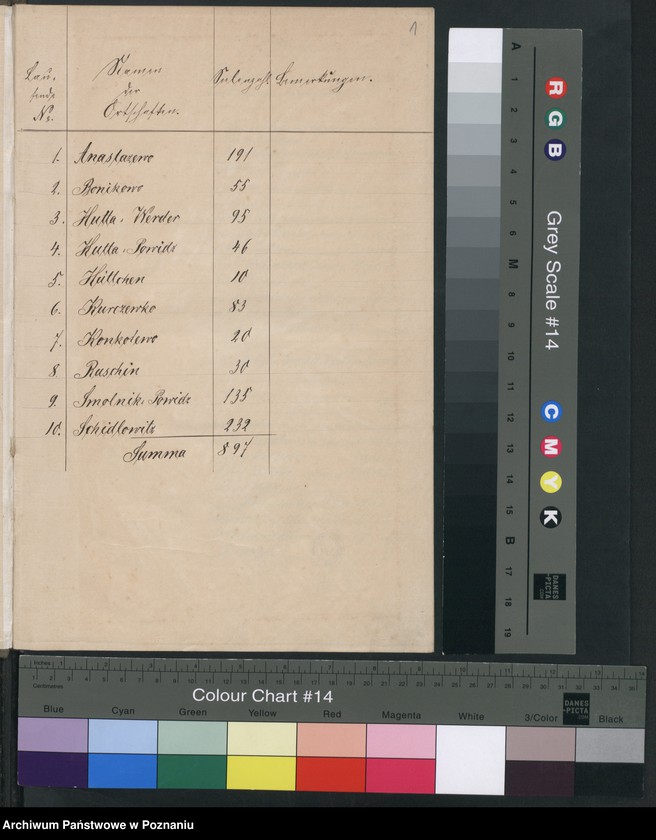 1
Lau-
fende
No.
Namen
der
Ortschaften.
Seelenzahl.
Bemerkungen.
1. Anastazewo 191
2. Bonikowo 55
3. Hutta-Werder 95
4. Hutta-Powidz 46
5. Hüttchen 10
6. Kurczewko 83
7. Konkolewo 20
8. Ruschin 30
9. Smolnik-Powidz 135
10. Schidlowitz 232
Summa 897
A 1 2 3 4 5 6 M 8 9 10 11 12 13 14 15 B 17 18 19
R G B
Grey Scale #14
C M Y K
DANES
-PICTA
.COM
Inches
Centimetres
Colour Chart #14
Blue Cyan Green Yellow Red Magenta White 3/Color Black
DANES
-PICTA
.COM
Archiwum Państwowe w Poznaniu